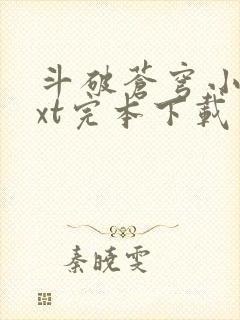 斗破蒼穹小
xt完本下載
秦曉雯